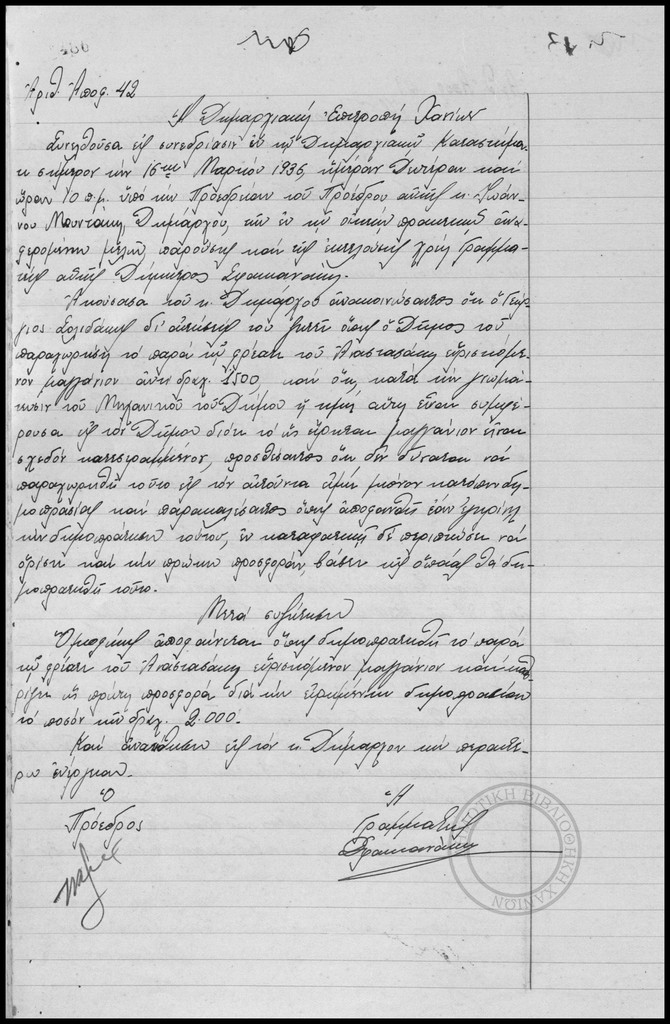 Ἀριθ. Ἀποφ. 42
Ἡ Δημαρχιακή Ἐπιτροπή Χανίων
Συνελθοῦσα εἰς συνεδρίασιν ἐν τῷ Δημαρχιακῷ Καταστήμα-
τι σήμερον τήν 16ην Μαρτίου 1936, ἡμέραν Δευτέραν καί
ὥραν 10 π.μ. ὑπό τήν Προεδρείαν τοῦ Προέδρου αὐτῆς κ. Ἰωάν-
νου Μουντάκη, Δημάρχου, τῶν ἐν τῷ οἰκείῳ πρακτικῷ ἀνα-
φερομένων μελῶν, παρούσης καί τῆς ἐκτελούσης χρέη Γραμμα-
τέως αὐτῆς Δήμητρας Σφακιανάκη.
Ἀκούσασα τοῦ κ. Δημάρχου ἀνακοινώσαντος ὅτι ὁ Γεώρ-
γιος Σκλιδάκης δι' αἰτήσεώς του ζητεῖ ὅπως ὁ Δῆμος τοῦ
παραχωρήσῃ τό παρά τῷ φρέατι τοῦ Ἀναστασάκη εὑρισκόμε-
νον μαγγάνιον ἀντί δραχ. 1500, καί ὅτι κατά τήν γνωμά-
τευσιν τοῦ Μηχανικοῦ τοῦ Δήμου ἡ τιμή αὕτη εἶναι συμφέ-
ρουσα εἰς τόν Δῆμον διότι τό ὡς εἴρηται μαγγάνιον εἶναι
σχεδόν κατεστραμμένον, προσθέσαντος ὅτι δέν δύναται νά
παραχωρηθῇ τοῦτο εἰς τόν αἰτοῦντα εἰμή μόνον κατόπιν δη-
μοπρασίας καί παρακαλέσαντος ὅπως ἀποφανθῇ ἐάν ἐγκρίνῃ
τήν δημοπράτησιν τούτου, ἐν καταφατικῇ δέ περιπτώσει νά
ὁρίσῃ καί τήν πρώτην προσφοράν, βάσει τῆς ὁποίας θά δη-
μοπρατηθῇ τοῦτο.
Μετά συζήτησιν
Ὁμοφώνως ἀποφαίνεται ὅπως δημοπρατηθῇ τό παρά
τῷ φρέατι τοῦ Ἀναστασάκη εὑρισκόμενον μαγγάνιον καί
ὡς πρώτη προσφορά διά τήν εἰρημένην δημοπρασίαν
τό ποσόν τῶν δραχ. 2.000.
Καί ἀναθέτει εἰς τόν κ. Δήμαρχον τήν περαιτέ-
ρω ἐνέργειαν.
Ὁ Ἡ
Πρόεδρος Γραμματεύς
Σφακιανάκη
ΔΗΜΟΤΙΚΗ ΒΙΒΛΙΟΘΗΚΗ ΧΑΝΙΩΝ